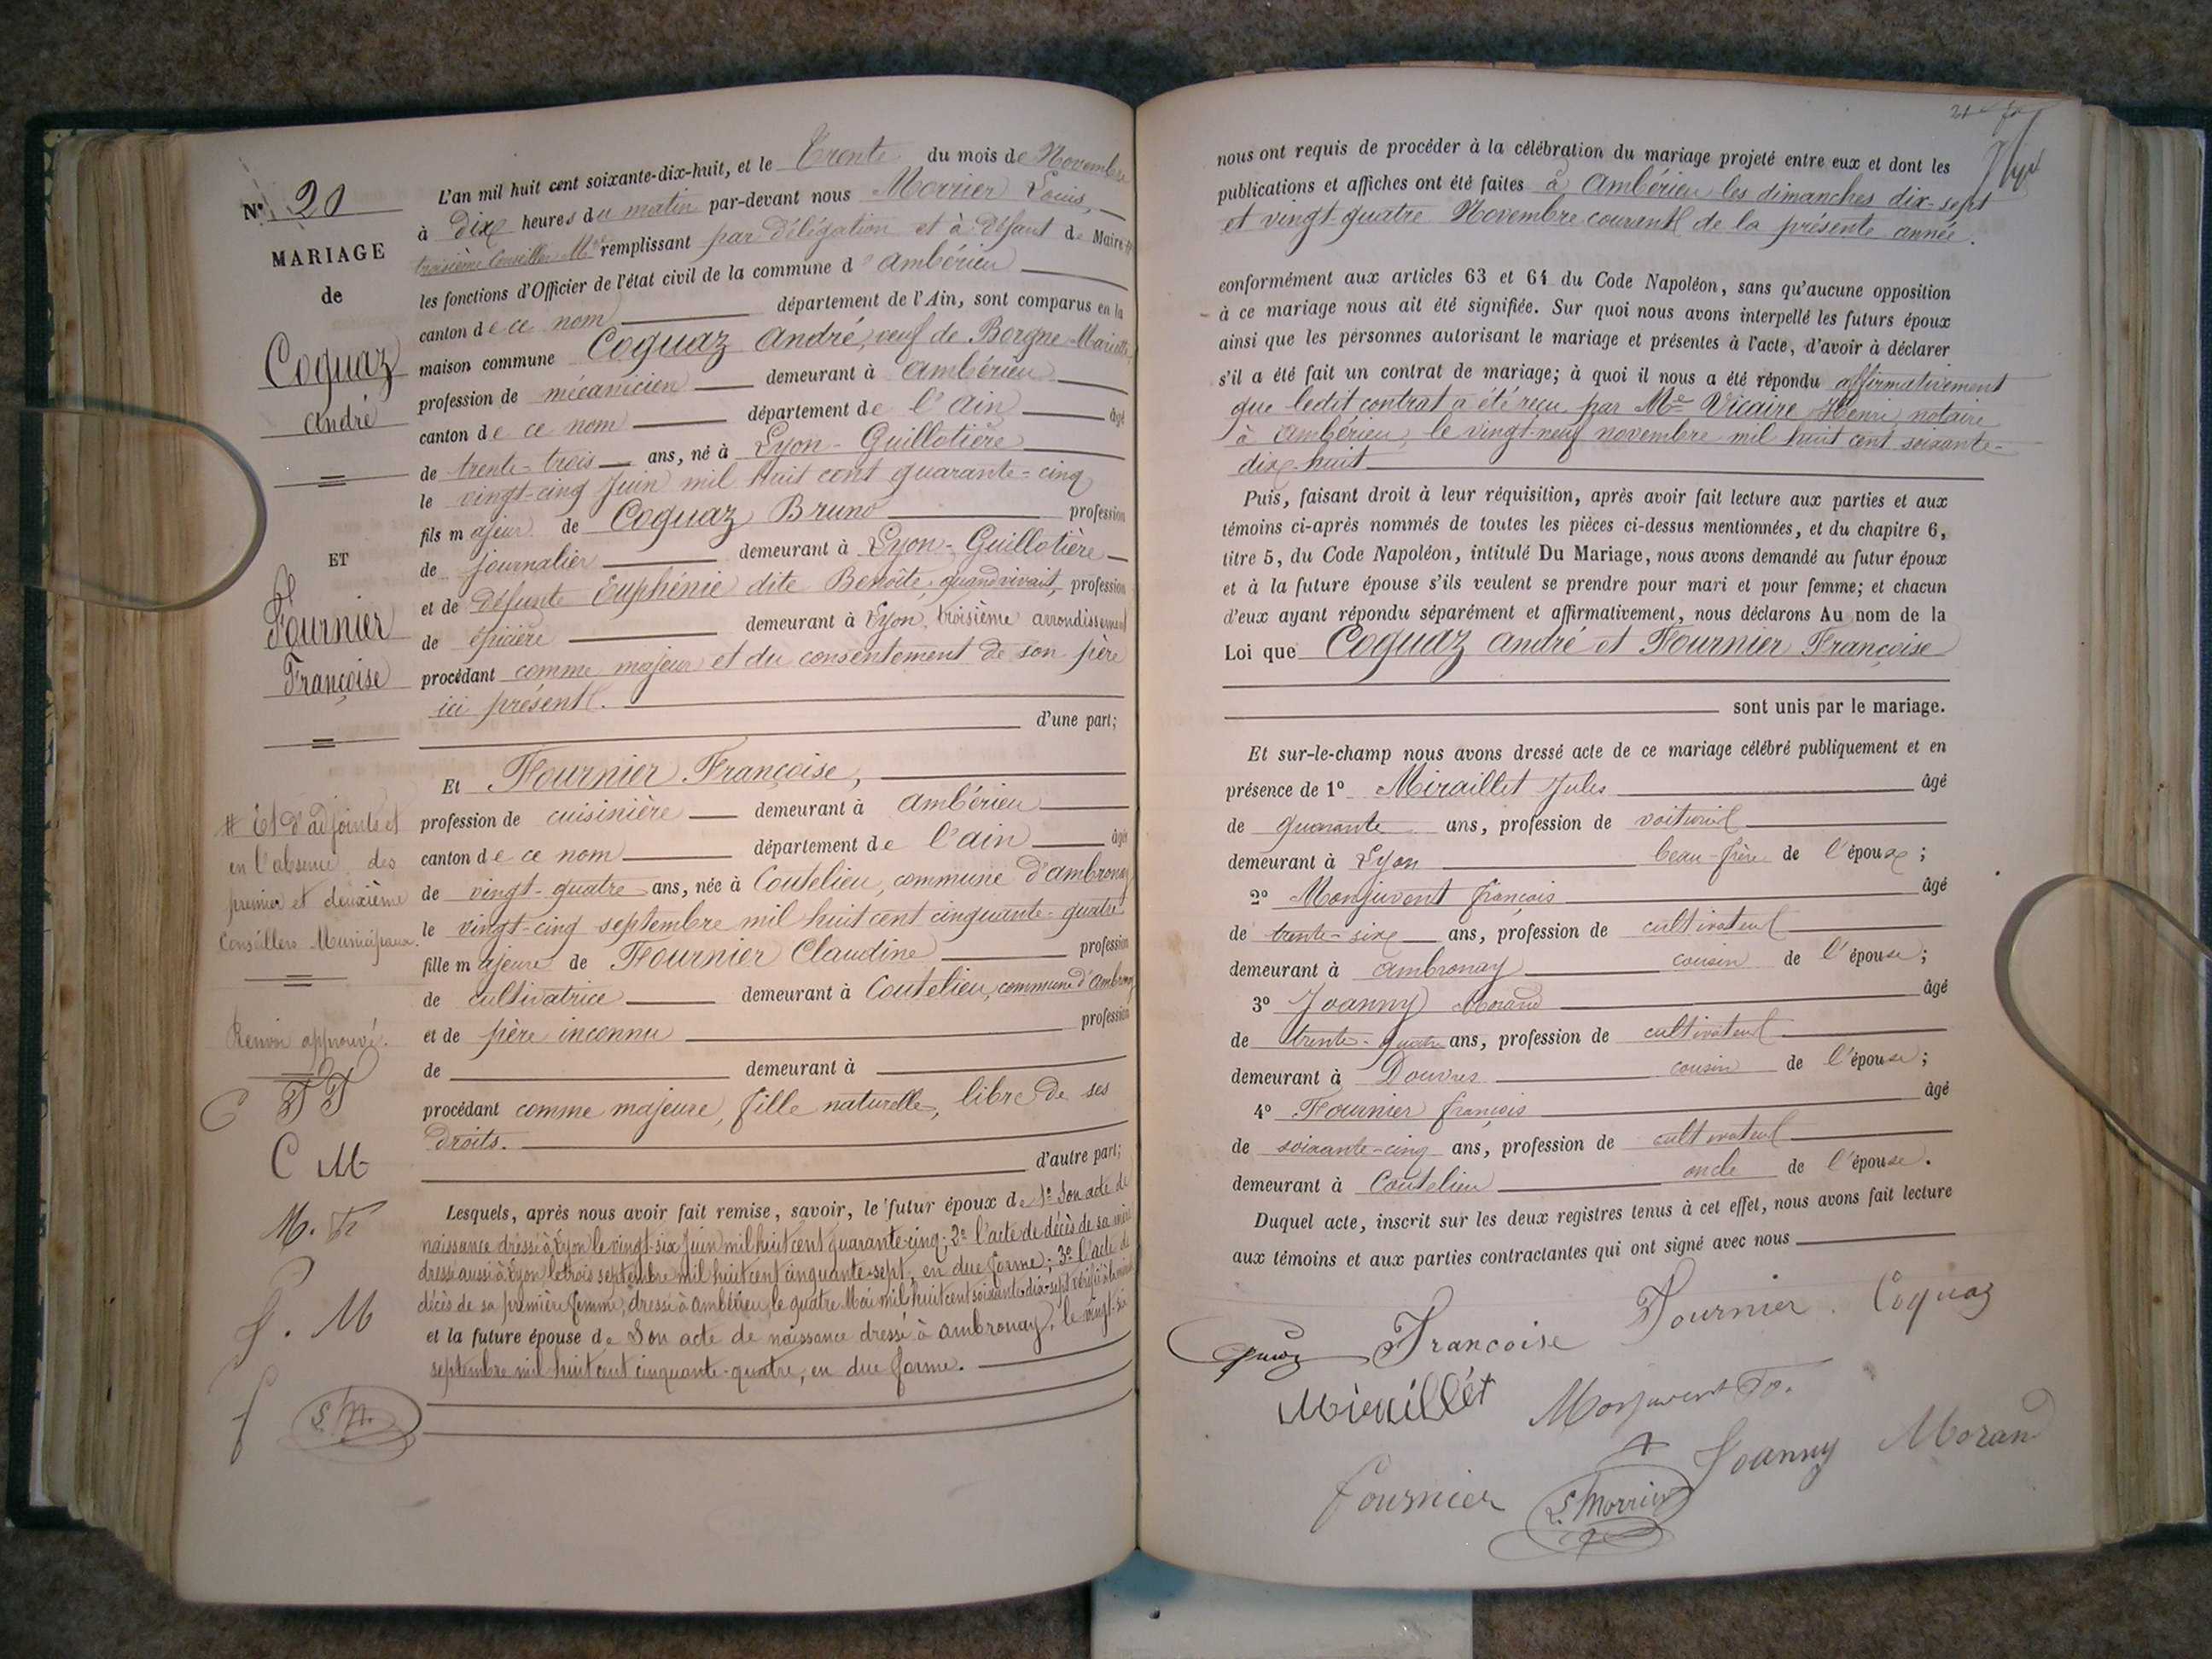 N° 20
MARIAGE
de
Coquaz
André
ET
Fournier
Françoise
# Et d'adjoints et
en l'absence des
premier et deuxième
Conseillers Municipaux.
Renvoi approuvé.
C F F
C M
M. F
J. M
f S. M.
L'an mil huit cent soixante-dix-huit, et le Trente du mois de Novembre
à dix heures du matin par-devant nous Morrier Louis,
troisième Conseiller Mal remplissant par délégation et à défaut de Maire #
les fonctions d'Officier de l'état civil de la commune d'Ambérieu
canton de ce nom département de l'Ain, sont comparus en la
maison commune Coquaz André, veuf de Borgne Mariette,
profession de mécanicien demeurant à Ambérieu
canton de ce nom département de l'Ain âgé
de trente-trois ans, né à Lyon-Guillotière
le vingt-cinq Juin mil huit cent quarante-cinq
fils majeur de Coquaz Bruno profession
de journalier demeurant à Lyon-Guillotière
et de défunte Euphénie dite Benoîte, quand vivait, profession
de épicière demeurant à Lyon, troisième arrondissement
procédant comme majeur et du consentement de son père
ici présent.
d'une part;
Et Fournier Françoise,
profession de cuisinière demeurant à Ambérieu
canton de ce nom département de l'Ain âgée
de vingt-quatre ans, née à Coutelieu, commune d'Ambronay
le vingt-cinq septembre mil huit cent cinquante-quatre
fille majeure de Fournier Claudine profession
de cultivatrice demeurant à Coutelieu, commune d'Ambronay
et de père inconnu profession
de demeurant à
procédant comme majeure, fille naturelle, libre de ses
droits.
d'autre part;
Lesquels, après nous avoir fait remise, savoir, le futur époux de 1° Son acte de
naissance dressé à Lyon le vingt-six Juin mil huit cent quarante-cinq; 2° l'acte de décès de sa mère
dressé aussi à Lyon le trois septembre mil huit cent cinquante-sept, en due forme; 3° l'acte de
décès de sa première femme, dressé à Ambérieu, le quatre Mai mil huit cent soixante-dix-sept vérifié à la minute
et la future épouse de Son acte de naissance dressé à Ambronay, le vingt-six
septembre mil huit cent cinquante-quatre, en due forme.
nous ont requis de procéder à la célébration du mariage projeté entre eux et dont les
publications et affiches ont été faites à Ambérieu les dimanches dix-sept
et vingt-quatre Novembre courant de la présente année.
conformément aux articles 63 et 64 du Code Napoléon, sans qu'aucune opposition
à ce mariage nous ait été signifiée. Sur quoi nous avons interpellé les futurs époux
ainsi que les personnes autorisant le mariage et présentes à l'acte, d'avoir à déclarer
s'il a été fait un contrat de mariage; à quoi il nous a été répondu affirmativement
que ledit contrat a été reçu par Me Vicaire Henri notaire
à Ambérieu, le vingt-neuf novembre mil huit cent soixante-
dix-huit
Puis, faisant droit à leur réquisition, après avoir fait lecture aux parties et aux
témoins ci-après nommés de toutes les pièces ci-dessus mentionnées, et du chapitre 6,
titre 5, du Code Napoléon, intitulé Du Mariage, nous avons demandé au futur époux
et à la future épouse s'ils veulent se prendre pour mari et pour femme; et chacun
d'eux ayant répondu séparément et affirmativement, nous déclarons Au nom de la
Loi que Coquaz André et Fournier Françoise
sont unis par le mariage.
Et sur-le-champ nous avons dressé acte de ce mariage célébré publiquement et en
présence de 1° Miraillet Jules âgé
de quarante ans, profession de voiturier
demeurant à Lyon beau-frère de l'épouse;
2° Monjuvent françois âgé
de trente-six ans, profession de cultivateur
demeurant à Ambronay cousin de l'épouse;
3° Joanny Morand âgé
de trente-quatre ans, profession de cultivateur
demeurant à Douvres cousin de l'épouse;
4° Fournier françois âgé
de soixante-cinq ans, profession de cultivateur
demeurant à Coutelieu oncle de l'épouse.
Duquel acte, inscrit sur les deux registres tenus à cet effet, nous avons fait lecture
aux témoins et aux parties contractantes qui ont signé avec nous
Françoise Fournier. Coquaz
Miraillét Monjuvent
Joanny Morand
fournier L. Morrier